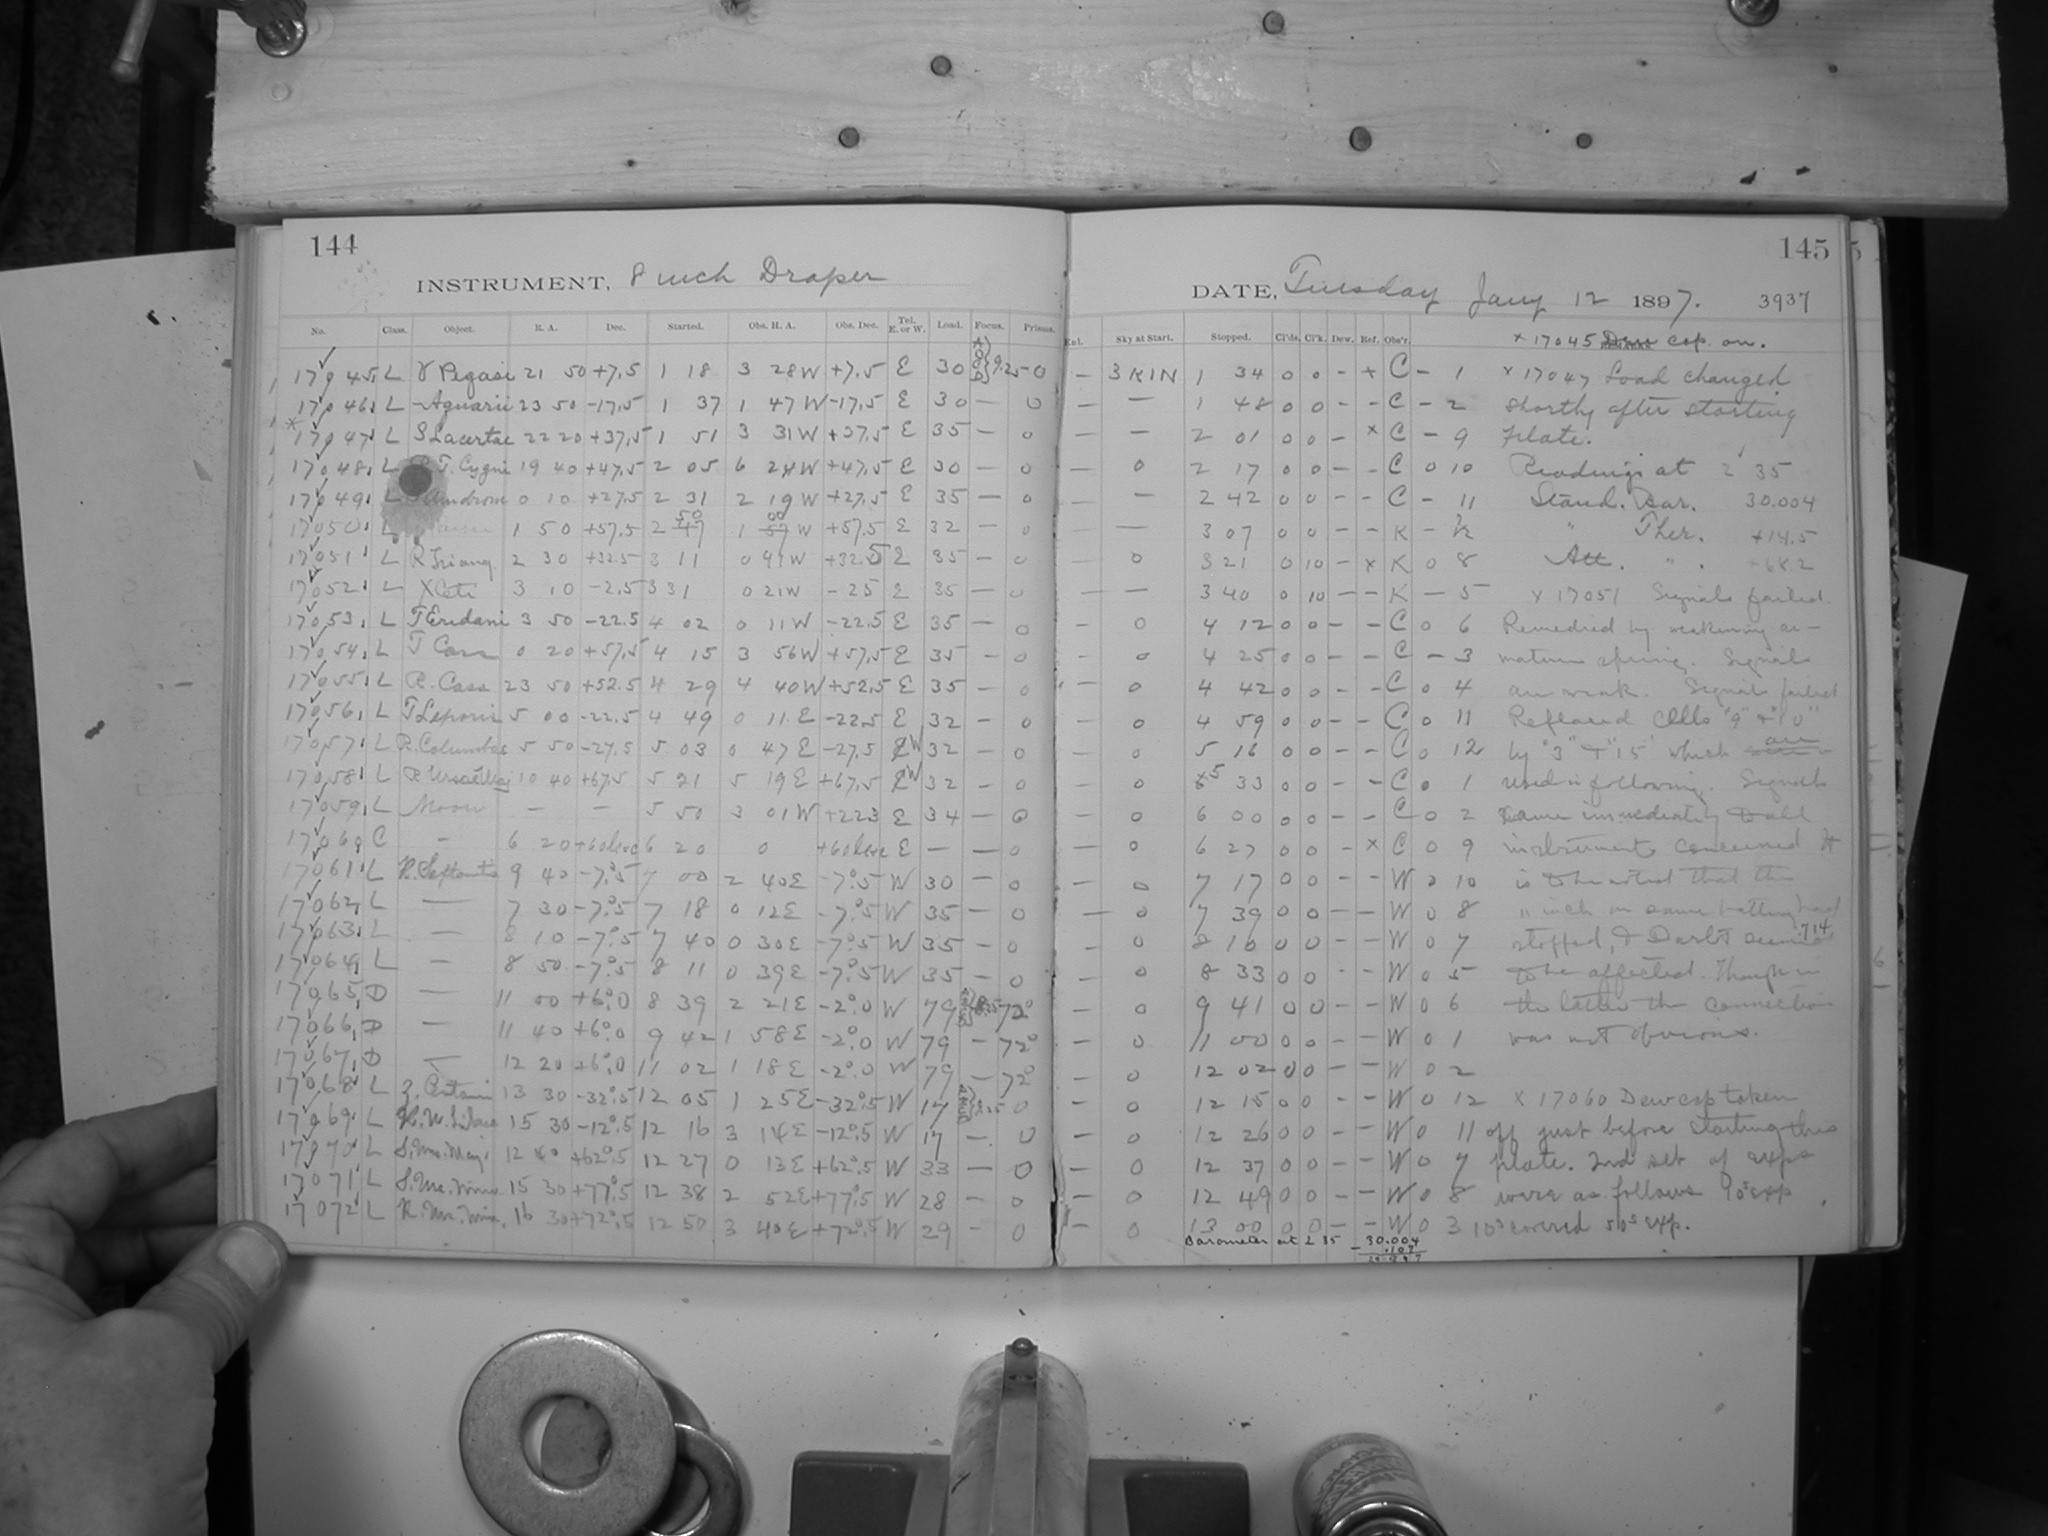 144
INSTRUMENT, 8 inch Draper
No. Class. Object. R. A. Dec. Started. Obs. H. A. Obs. Dec. Tel. E. or W. Load. Focus. Prisms.
17045 L γ Pegasi 21 50 +7.5 1 18 3 28 W +7.5 E 30 9.25 0
17046 L - Aquarii 23 50 -17.5 1 37 1 47 W -17.5 E 30 — 0
* 17047 L S Lacertae 22 20 +37.5 1 51 3 31 W +37.5 E 35 — 0
17048 L T. Cygni 19 40 +47.5 2 05 6 24 W +47.5 E 30 — 0
17049 L Androm 0 10 +27.5 2 31 2 19 W +27.5 E 35 — 0
17050 L 1 50 +57.5 2 47 50 1 57 00 W +57.5 E 32 - 0
17051 L R Triang. 2 30 +32.5 3 11 0 41 W +32.5 E 35 — 0
17052 L X Ceti 3 10 -2.5 3 31 0 21 W -25 E 35 — 0
17053 L T Eridani 3 50 -22.5 4 02 0 11 W -22.5 E 35 — 0
17054 L T Cass 0 20 +57.5 4 15 3 56 W +57.5 E 35 — 0
17055 L R. Cass 23 50 +52.5 4 29 4 40 W +52.5 E 35 — 0
17056 L T Leporis 5 00 -22.5 4 49 0 11 E -22.5 E 32 — 0
17057 L R. Columbae 5 50 -27.5 5 03 0 47 E -27.5 W 32 — 0
17058 L R Ursae Maj 10 40 +67.5 5 21 5 19 E +67.5 W 32 — 0
17059 L Moon — — 5 50 3 01 W +223 E 34 — 0
17060 C — 6 20 +60 6 20 0 +60 E — — 0
17061 L R. Sextantis 9 40 -7°.5 7 00 2 40 E -7°.5 W 30 — 0
17062 L — 7 30 -7°.5 7 18 0 12 E -7°.5 W 35 — 0
17063 L — 8 10 -7°.5 7 40 0 30 E -7°.5 W 35 — 0
17064 L — 8 50 -7°.5 8 11 0 39 E -7°.5 W 35 — 0
17065 D — 11 00 +6°.0 8 39 2 21 E -2°.0 W 79 72°
17066 D — 11 40 +6°.0 9 42 1 58 E -2°.0 W 79 — 72°
17067 D — 12 20 +6°.0 11 02 1 18 E -2°.0 W 79 — 72°
17068 L 13 30 -32°.5 12 05 1 25 E -32°.5 W 17 0
17069 L 15 30 -12°.5 12 16 3 14 E -12°.5 W 17 — 0
17070 L S. Urs. Maj. 12 40 +62°.5 12 27 0 13 E +62°.5 W 33 — 0
17071 L S. Urs. Min. 15 30 +77°.5 12 38 2 52 E +77°.5 W 28 — 0
17072 L R. Urs. Min. 16 30 +72°.5 12 50 3 40 E +72°.5 W 29 — 0
145
DATE, Tuesday Jany 12 1897. 3937
Sky at Start. Stopped. Cl'ds. Cl'k. Dew. Ref. Obs'r. × 17045 Dew cap on.
— 3 KIN 1 34 0 0 - × C - 1 × 17047 Load changed
— — 1 48 0 0 - - C - 2 shortly after starting
— — 2 01 0 0 - × C - 9 plate.
— 0 2 17 0 0 - - C 0 10 Readings at 2 35
— — 2 42 0 0 - - C - 11 Stand. Bar. 30.004
— — 3 07 0 0 - - K - " Ther. +14.5
— 0 3 21 0 10 - × K 0 8 Att. " .
— — 3 40 0 10 - - K - 5 × 17051 Signals failed.
— 0 4 12 0 0 - - C 0 6 Remedied by weakening ar-
— 0 4 25 0 0 - - C - 3 mature spring. Signals
— 0 4 42 0 0 - - C 0 4 are weak. Signals failed
— 0 4 59 0 0 - - C 0 11 Replaced Cells "9" & "10"
— 0 5 16 0 0 - - C 0 12 by "3" & "15" which are
— 0 5 33 0 0 - - C 0 1 used in following. Signals
— 0 6 00 0 0 - - C 0 2 came immediately to all
— 0 6 27 0 0 - × C 0 9 instruments concerned It
— 0 7 17 0 0 - - W 0 10 is to be noted that the
— 0 7 39 0 0 - - W 0 8 11 inch on same battery had
— 0 8 10 0 0 - - W 0 7 stopped, &
— 0 8 33 0 0 - - W 0 5 to be affected. Though in
— 0 9 41 0 0 - - W 0 6 the latter the connection
— 0 11 00 0 0 - - W 0 1 was not obvious.
— 0 12 02 0 0 - - W 0 2
— 0 12 15 0 0 - - W 0 12 × 17060 Dew cap taken
— 0 12 26 0 0 - - W 0 11 off just before starting this
— 0 12 37 0 0 - - W 0 7 plate. 2nd set of exps
— 0 12 49 0 0 - - W 0 8 were as follows 90s exp
— 0 13 00 0 0 - - W 0 3 10s covered 50s exp.
Barometer at 2 35 - 30.004
- .107